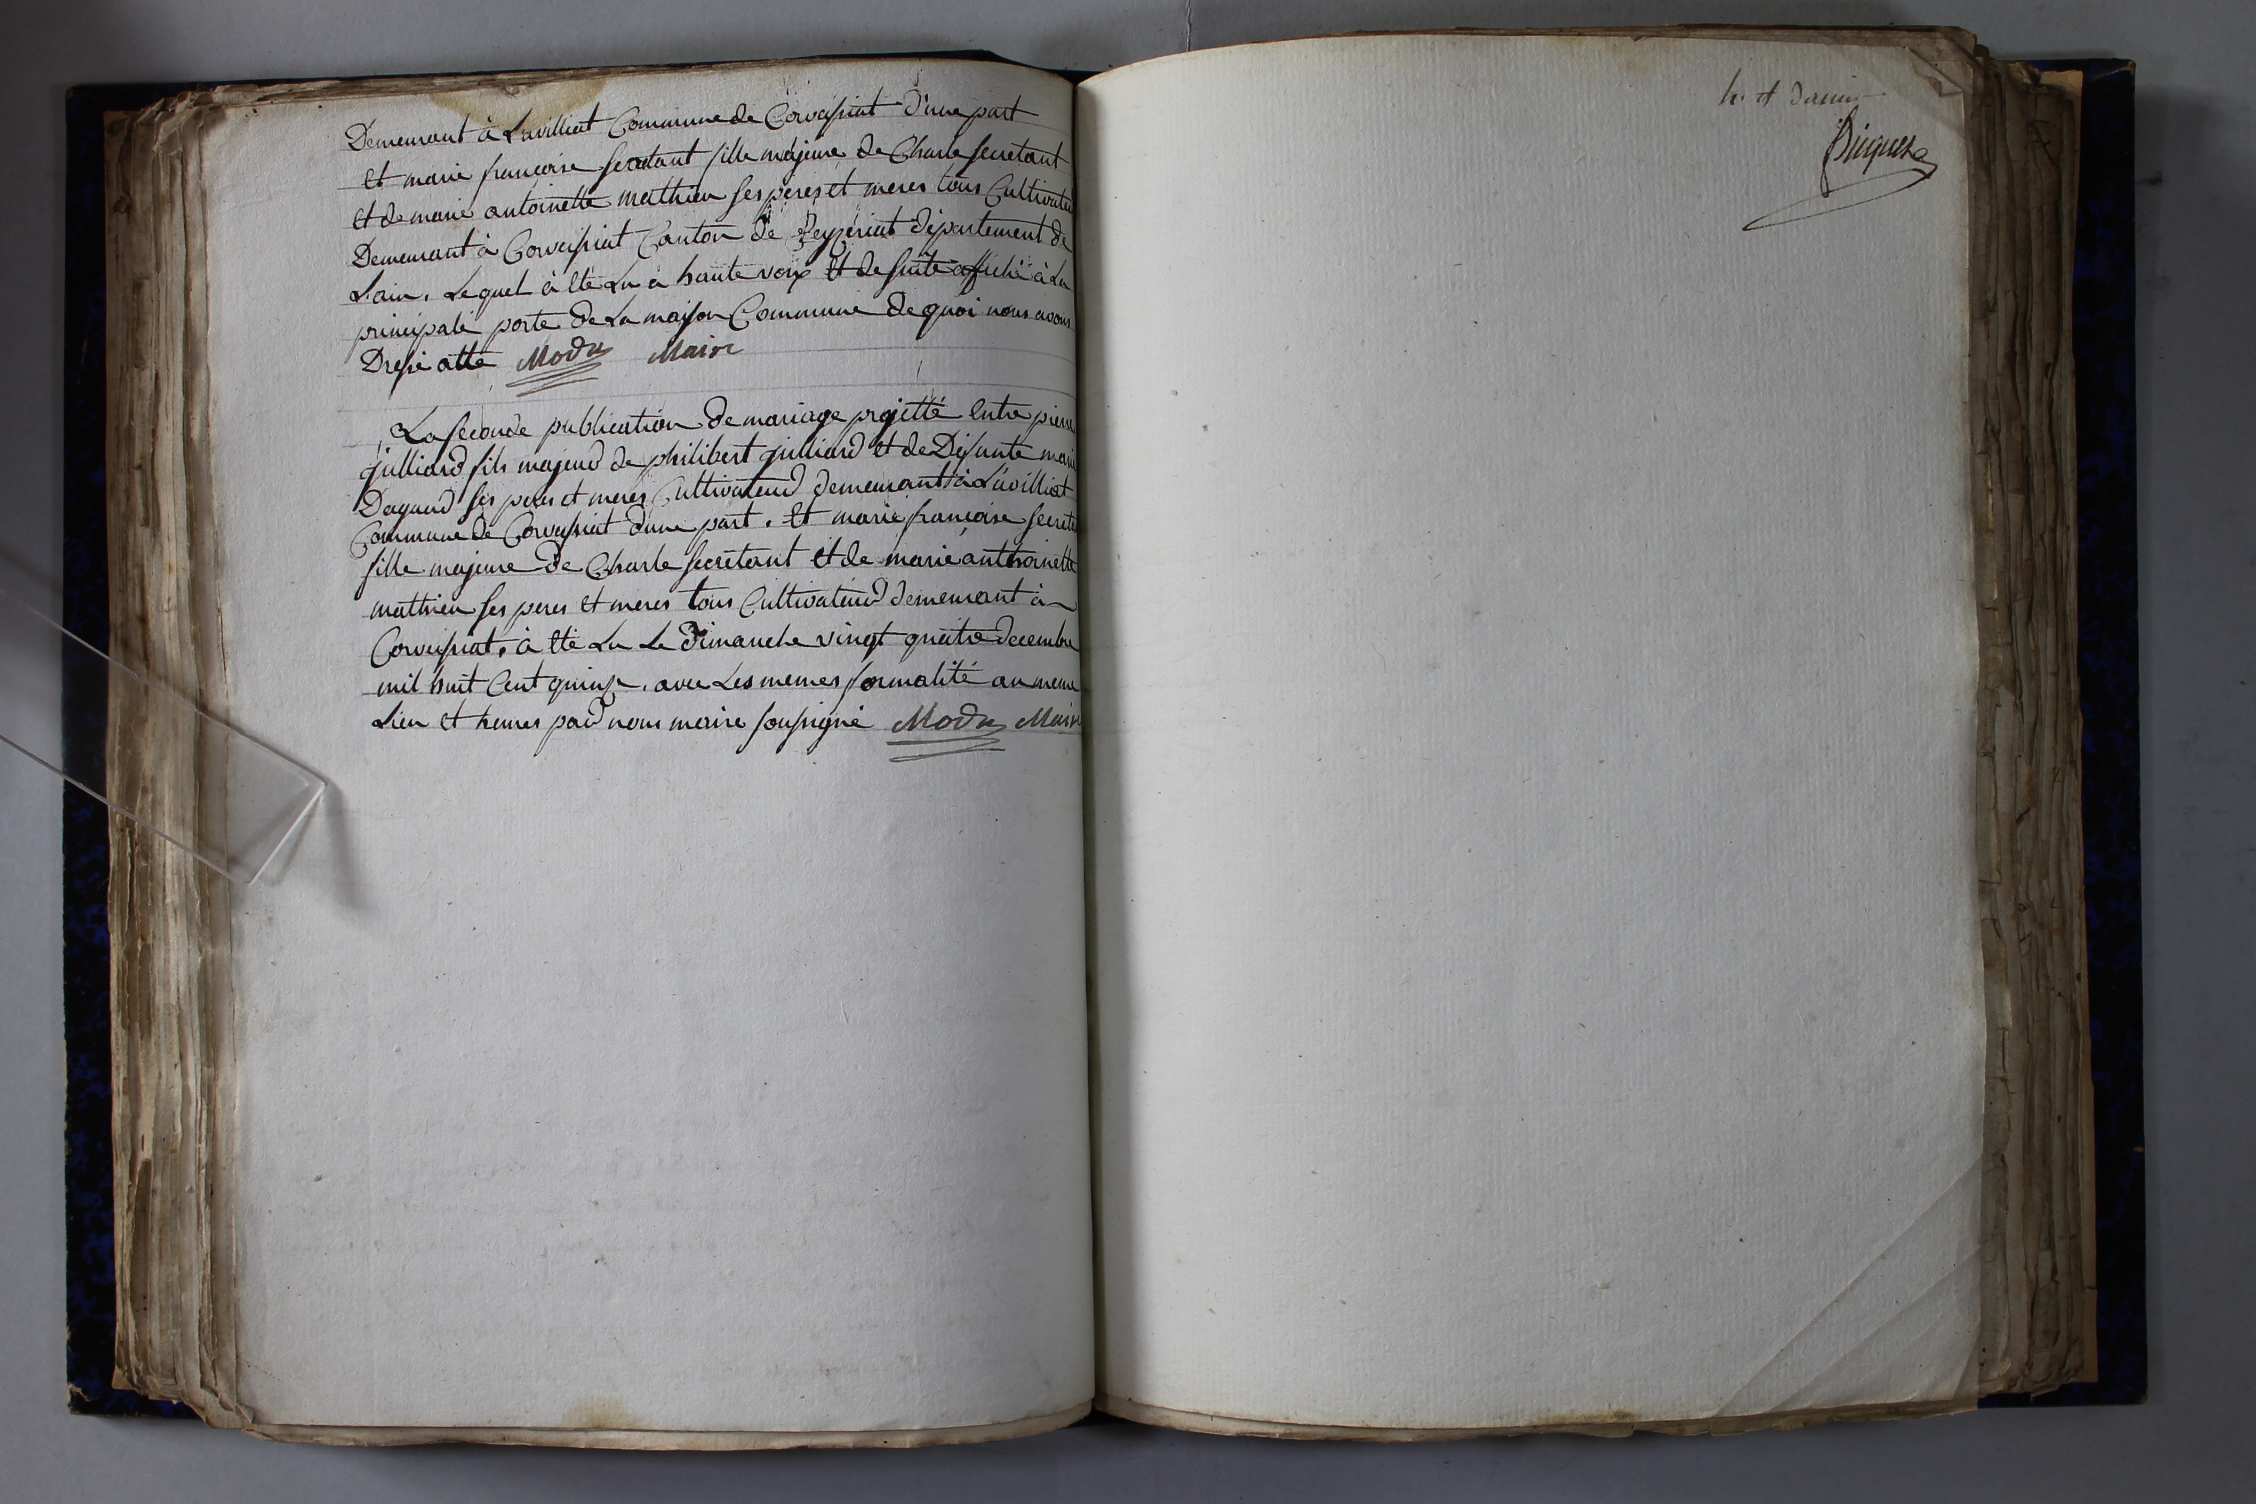 Demeurant à Lavilliat Commune de Corveissiat d'une part
et marie françoise secretant fille majeure de Charle secretant
et de marie antoinette mathieu ses peres et meres tous Cultivateu
Demeurant à Corveissiat Canton de Ceyzeriat département de
L'ain. Lequel à été Lu à haute voix et de suite affiché à La
principale porte de La maison Commune de quoi nous avons
Dressé atte Modu Maire
La seconde publication de mariage projetté entre pierre
julliard fils majeur de philibert julliard et de Defunte marie
Dagaud ses peres et meres Cultivateurs demeurant à Lavilliat
Commune de Corveissiat d'une part. et marie françoise secreta
fille majeure de Charle secretant et de marie anthoinette
mathieu ses peres et meres tous Cultivateurs demeurant à
Corveissiat. à été Lu Le Dimanche vingt quatre decembre
mil huit Cent quinze. avec Les memes formalité au meme
Lieu et heures par nous maire soussigné Modu Maire
h. et dernier